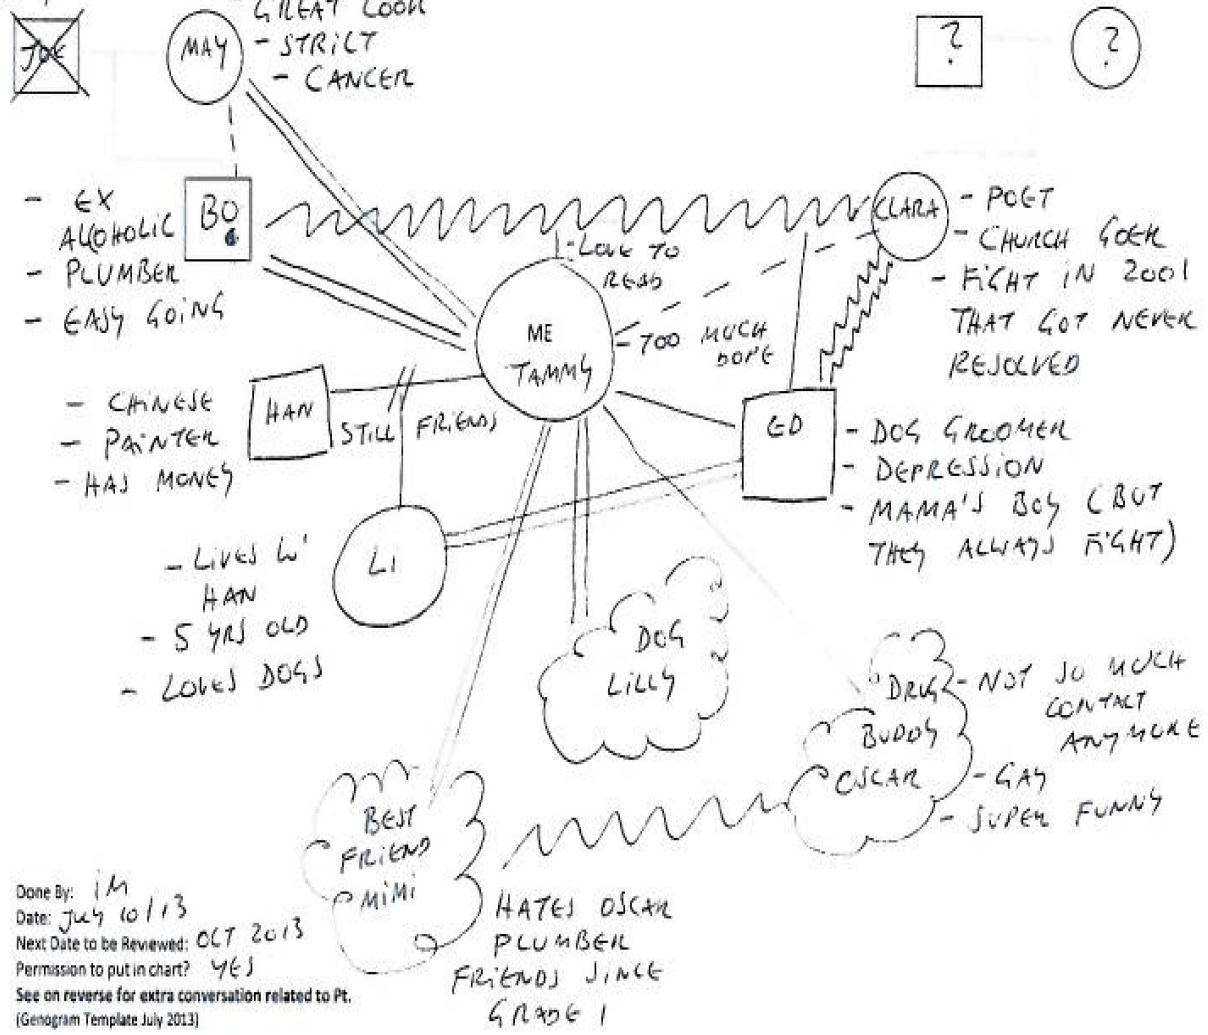 GREAT COOK
- STRICT
- CANCER
JOE
MAY
?
?
- EX
ALCOHOLIC
- PLUMBER
- EASY GOING
BO
CLARA
- POET
- CHURCH GOER
- FIGHT IN 2001
THAT GOT NEVER
RESOLVED
- LOVE TO
READ
- TOO MUCH
DOPE
ME
TAMMY
- CHINESE
- PAINTER
- HAS MONEY
HAN
STILL FRIENDS
ED
- DOG GROOMER
- DEPRESSION
- MAMA'S BOY (BUT
THEY ALWAYS FIGHT)
- LIVES W'
HAN
- 5 YRS OLD
- LOVES DOGS
LI
DOG
LILLY
DRUG
BUDDY
OSCAR
- NOT SO MUCH
CONTACT
ANYMORE
- GAY
- SUPER FUNNY
BEST
FRIEND
MIMI
HATES OSCAR
PLUMBER
FRIENDS SINCE
GRADE 1
Done By: iM
Date: July 10/13
Next Date to be Reviewed: OCT 2013
Permission to put in chart? YES
See on reverse for extra conversation related to Pt.
(Genogram Template July 2013)